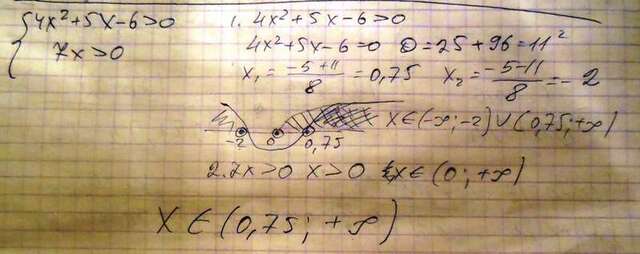 {4x²+5x-6>0
7x>0
1. 4x²+5x-6>0
4x²+5x-6=0 D=25+96=11²
x₁=(-5+11)/8=0,75 x₂=(-5-11)/8=-2
-2 0 0,75 x∈(-∞;-2)∪(0,75;+∞)
2. 7x>0 x>0 x∈(0;+∞)
x∈(0,75;+∞)